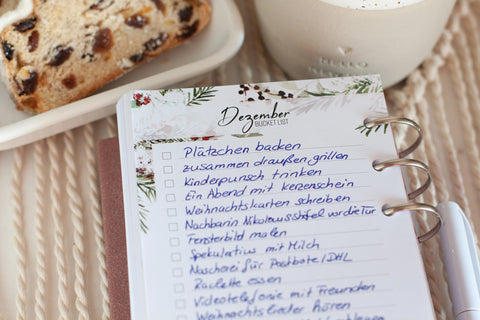 Dezember
BUCKET LIST
Plätzchen backen
zusammen draußen grillen
Kinderpunsch trinken
Ein Abend mit Kerzenschein
Weihnachtskarten schreiben
Nachbarin Nikolausstiefel vor die Tür
Fensterbild malen
Spekulatius mit Milch
Nascherei für Postbote/DHL
Raclette essen
Videotelefonie mit Freunden
Weihnachtslieder hören